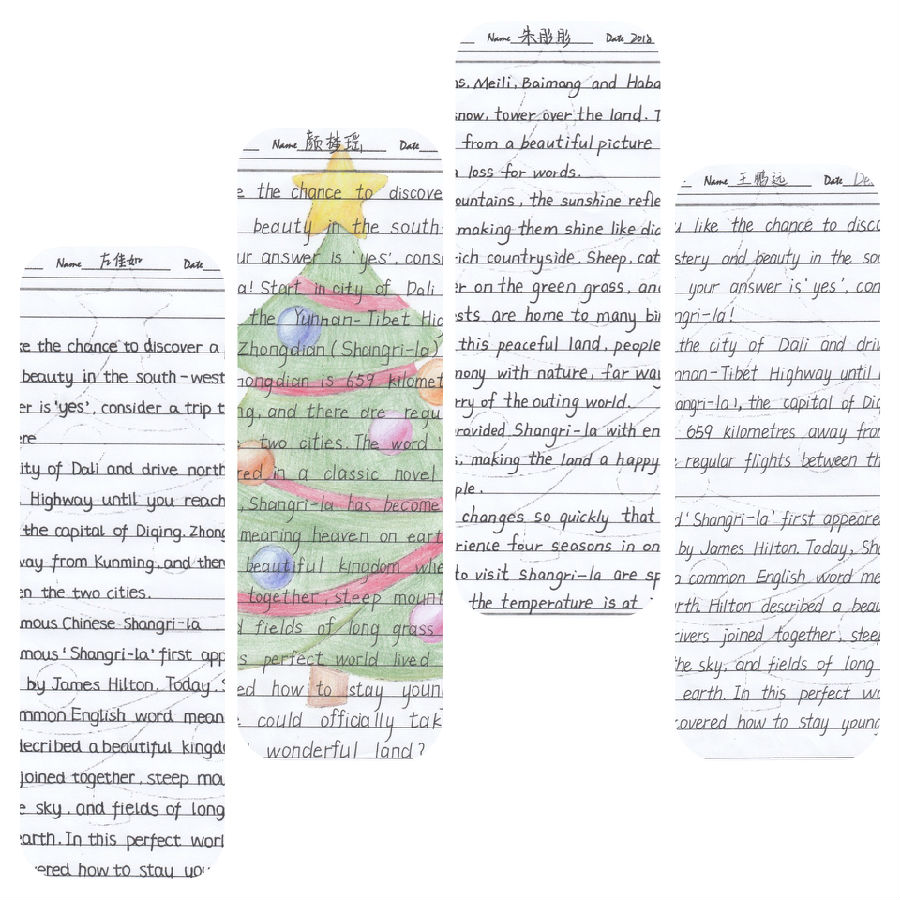 Name 左佳如 Date
ke the chance to discover a
beauty in the south-west
er is 'yes', consider a trip t
ere
ity of Dali and drive north
Highway until you reach
the capital of Diqing. Zhong
way from Kunming, and then
en the two cities.
mous Chinese Shangri-la
mous 'Shangri-la' first app
by James Hilton. Today, S
mmon English word mean
decribed a beautiful kingdo
joined together, steep mou
e sky, and fields of long
earth. In this perfect worl
vered how to stay you
Name 颜梦瑶 Date
e the chance to discove
beauty in the south-
ur answer is 'yes', consi
a! Start in city of Dali
the Yunnan-Tibet Hig
Zhongdian (Shangri-la)
hongdian is 659 kilomet
ng, and there are regu
two cities. The word '
red in a classic novel
, Shangri-la has become
mearing heaven on eart
beautiful kingdom whe
together, steep mount
d fields of long grass
s perfect world lived
ed how to stay youn
e could officially tak
wonderful land?
Name 朱彤彤 Date 2018
ns, Meili, Baimang and Haba
snow, tower over the land. T
from a beautiful picture
a loss for words.
ountains, the sunshine refle
making them shine like dia
rich countryside. Sheep, cat
er on the green grass, and
sts are home to many bir
this peaceful land, people
mony with nature, far way
rry of the outing world.
rovided Shangri-la with en
s, making the land a happy
ple.
changes so quickly that
rience four seasons in on
to visit shangri-la are sp
the temperature is at
Name 王鹏远 Date De.
u like the chance to disco
stery and beauty in the sou
your answer is 'yes', con
ngri-la!
the city of Dali and driv
nnan-Tibet Highway until
angri-la), the capital of Diq
659 kilometres away from
e regular flights between th
d 'Shangri-la' first appeare
by James Hilton. Today, Sh
a common English word me
rth. Hilton described a beau
rivers joined together, steep
the sky, and fields of long
earth. In this perfect wo
covered how to stay young